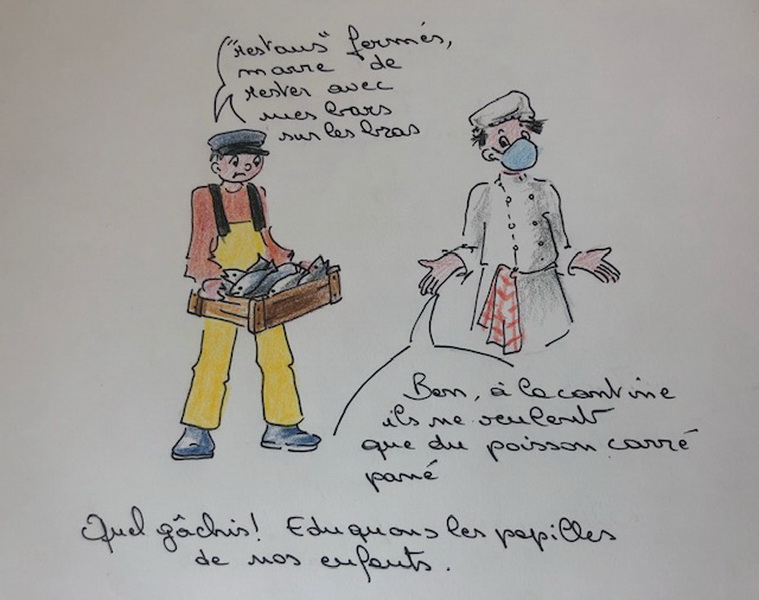 "restaus" fermés,
marre de
rester avec
mes bars
sur les bras
Ben, à la cantine
ils ne veulent
que du poisson carré
pané
Quel gâchis! Eduquons les papilles
de nos enfants.